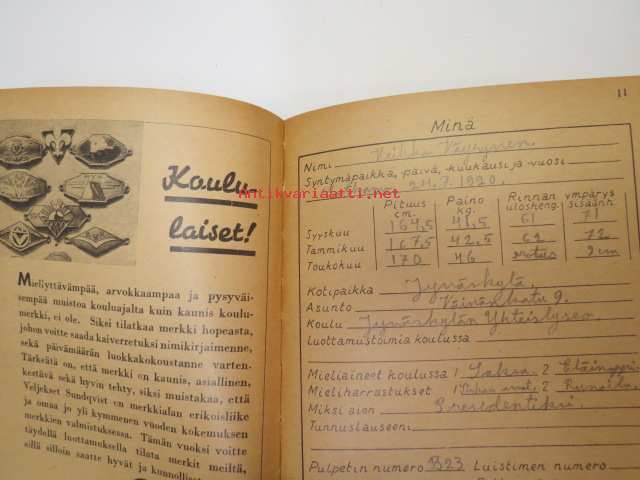 Koulu-
laiset!
Mieliyttävämpää, arvokkaampaa ja pysyväi-
sempää muistoa kouluajalta kuin kaunis koulu-
merkki, ei ole. Siksi tilatkaa merkki hopeasta,
johon voitte saada kaiverretuksi nimikirjaimenne,
sekä päivämäärän luokkakokoustanne varten-
Tärkeätä on, että merkki on kaunis, asiallinen,
kestävä sekä hyvin tehty, siksi muistakaa, että
Veljekset Sundqvist en merkkialan erikoisliike
ja omaa jo yli kymmenen vuoden kokemuksen
merkkien valmistuksessa. Tämän vuoksi voitte
täydellä luottamuksella tilata merkit meiltä,
sillä silloin saatte hyvät ja kunnollis
antikvariaatti.net
11
Minä
Nimi Veikko Väyrynen.
Syntymäpaikka, -päivä, -kuukausi ja -vuosi
24.7.1920.
Pituus cm. Paino kg. Rinnan ympärys
ulosheng. sisäänh.
Syyskuu 164,5 41,5 61 71
Tammikuu 167,5 42,5 62 72
Toukokuu 170 46 erotus 9 cm
Kotipaikka Jyväskylä.
Asunto Väinönkatu 9.
Koulu Jyväskylän Yhteislyseo
Luottamustoimia koulussa
Mieliaineet koulussa 1. Saksa. 2
Mieliharrastukset 1 2
Miksi aion Presidentiksi.
Tunnuslauseeni
Pulpetin numero B23 Luistimen numero